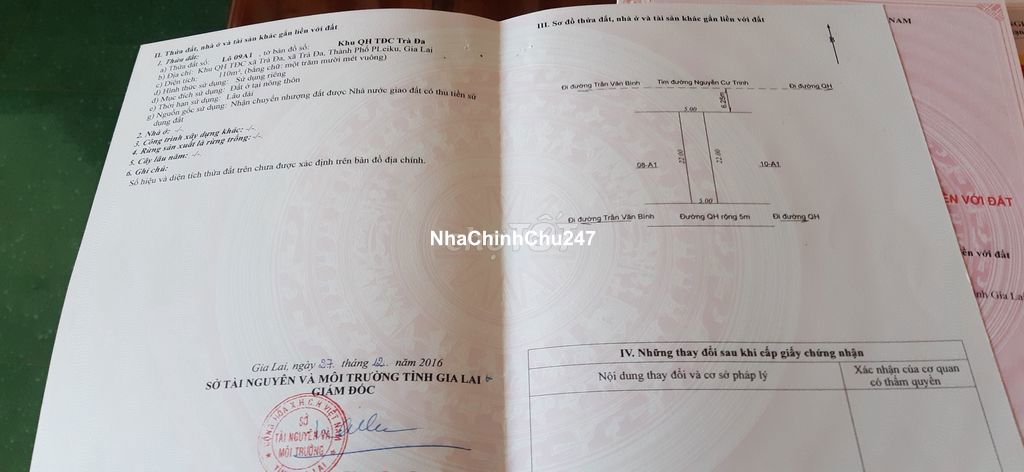 II. Thửa đất, nhà ở và tài sản khác gắn liền với đất
1. Thửa đất:
Khu QH TĐC Trà Đa
a) Thửa đất số: Lô 09A1 , tờ bản đồ số:
b) Địa chỉ: Khu QH TĐC xã Trà Đa, xã Trà Đa, Thành Phố PLeiku, Gia Lai
c) Diện tích: 110m², (bằng chữ: một trăm mười mét vuông)
d) Hình thức sử dụng: Sử dụng riêng
đ) Mục đích sử dụng: Đất ở tại nông thôn
e) Thời hạn sử dụng: Lâu dài
g) Nguồn gốc sử dụng: Nhận chuyển nhượng đất được Nhà nước giao đất có thu tiền sử
dụng đất
2. Nhà ở: -/-.
3. Công trình xây dựng khác: -/-.
4. Rừng sản xuất là rừng trồng: -/-.
5. Cây lâu năm: -/-.
6. Ghi chú:
Số hiệu và diện tích thửa đất trên chưa được xác định trên bản đồ địa chính.
Gia Lai, ngày 27 tháng 12 năm 2016
SỞ TÀI NGUYÊN VÀ MÔI TRƯỜNG TỈNH GIA LAI
GIÁM ĐỐC
CỘNG HÒA X.H.C.N VIỆT NAM
SỞ
TÀI NGUYÊN VÀ
MÔI TRƯỜNG
III. Sơ đồ thửa đất, nhà ở và tài sản khác gắn liền với đất
B
Đi đường Trần Văn Bính
Tim đường Nguyễn Cư Trinh
Đi đường QH
6.25m
5.00
22.00
22.00
08-A1
10-A1
5.00
Đi đường Trần Văn Bính
Đường QH rộng 5m
Đi đường QH
IV. Những thay đổi sau khi cấp giấy chứng nhận
Nội dung thay đổi và cơ sở pháp lý
Xác nhận của cơ quan
có thẩm quyền
NAM
ỀN VỚI ĐẤT
ền với đất
ỉnh Gia Lai
chợ TỐT
NhaChinhChu247